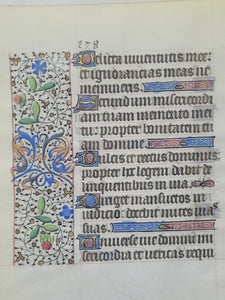 Delicta iuventutis mee:
et ignorancias meas ne
memineris.
Secundum misericordi
am tuam memento mei
tu: propter bonitatem tu
am domine.
Dulcis et rectus dominus:
propter hoc legem dabit de
linquentibus in via.
Diriget mansuetos in
iudicio: docebit mites vi
as suas.
Universe vie domini mi
sericordia et veritas requi